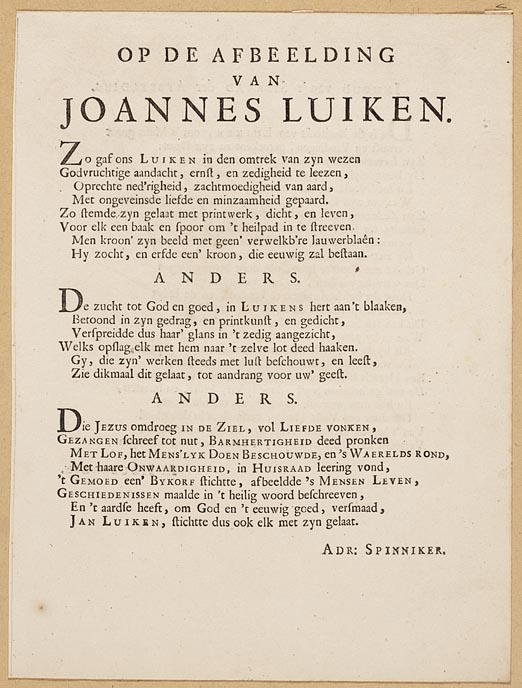 OP DE AFBEELDING
VAN
JOANNES LUIKEN.
Zo gaf ons LUIKEN in den omtrek van zyn wezen
Godvruchtige aandacht, ernst, en zedigheid te leezen,
Oprechte ned'righeid, zachtmoedigheid van aard,
Met ongeveinsde liefde en minzaamheid gepaard.
Zo stemde zyn gelaat met printwerk, dicht, en leven,
Voor elk een baak en spoor om 't heilpad in te streeven.
Men kroon' zyn beeld met geen' verwelkb're lauwerblaên:
Hy zocht, en erfde een' kroon, die eeuwig zal bestaan.
ANDERS.
De zucht tot God en goed, in LUIKENS hert aan't blaaken,
Betoond in zyn gedrag, en printkunst, en gedicht,
Verspreidde dus haar' glans in 't zedig aangezicht,
Welks opslag elk met hem naar 't zelve lot deed haaken.
Gy, die zyn' werken steeds met lust beschouwt, en leest,
Zie dikmaal dit gelaat, tot aandrang voor uw' geest.
ANDERS.
Die JEZUS omdroeg IN DE ZIEL, vol LIEFDE VONKEN,
GEZANGEN schreef tot nut, BARMHERTIGHEID deed pronken
MET LOF, het MENS'LYK DOEN BESCHOUWDE, en 's WAERELDS ROND,
Met haare ONWAARDIGHEID, in HUISRAAD leering vond,
't GEMOED een' BYKORF stichtte, afbeeldde 's MENSEN LEVEN,
GESCHIEDENISSEN maalde in 't heilig woord beschreeven,
En 't aardse heeft, om God en 't eeuwig goed, versmaad,
JAN LUIKEN, stichtte dus ook elk met zyn gelaat.
ADR: SPINNIKER.